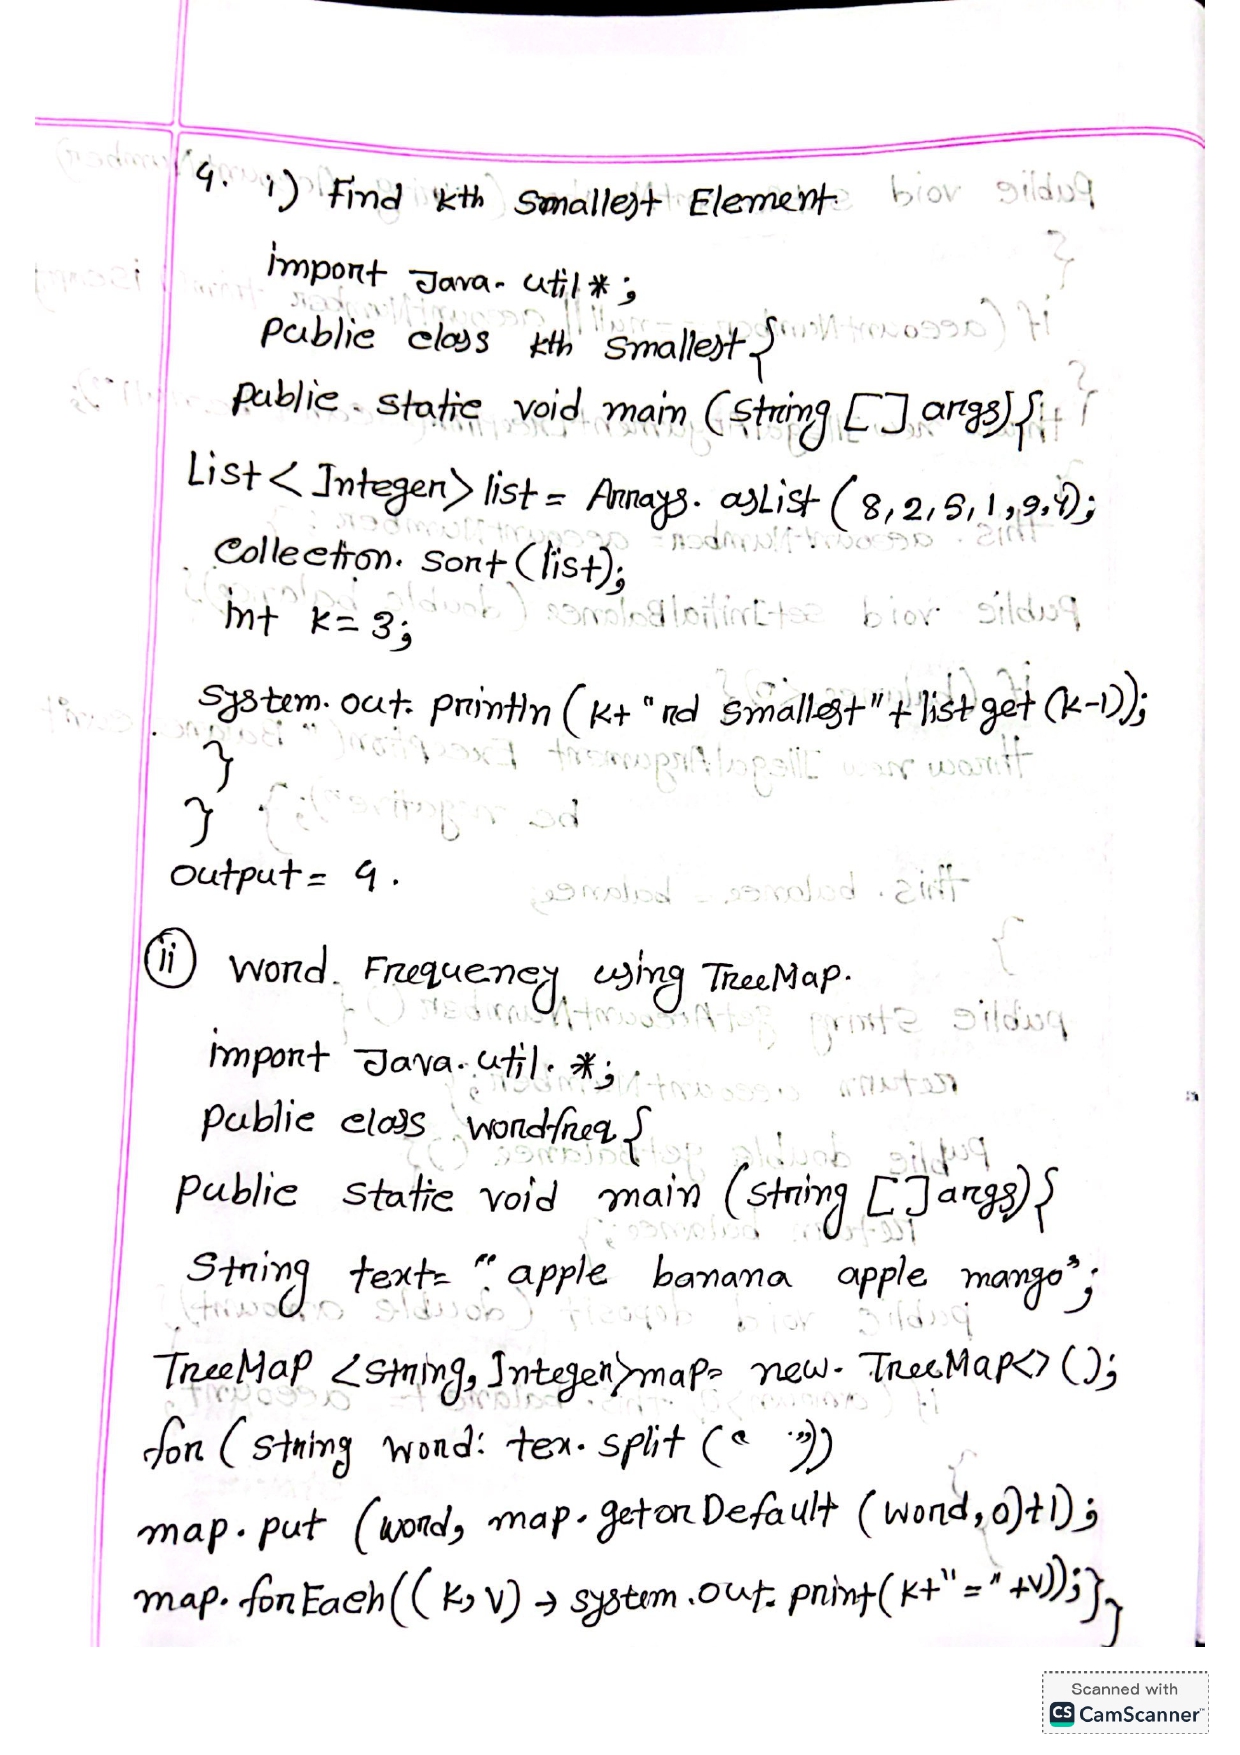 4. i) Find kth Smallest Element.
import Java. util *;
Public class kth Smallest{
public static void main (string [] args){
List < Integer> list = Arrays. asList (8,2,5,1,9,4);
Collection. sort (list);
int k= 3;
system.out. println (k+ "rd smallest" + list get (k-1));
}
}
output = 4.
ii Word Frequency using TreeMap.
import Java. util. *;
public class wordfreq{
public static void main (string []args){
String text= "apple banana apple mango";
TreeMap <string, Integer>map= new TreeMap<>();
for ( string word: tex. split (" "))
map. put (word, map. getorDefault (word, 0)+1);
map. forEach((k, v) → system.out. print(k+"="+v));}}
Scanned with
CS CamScanner